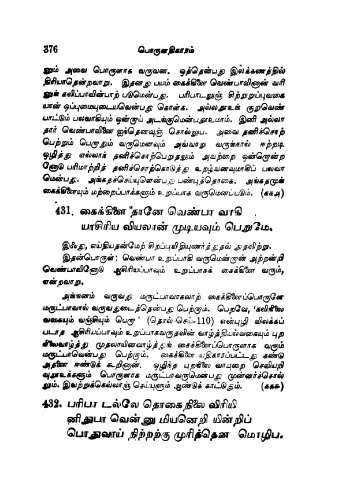 376 பொருளதிகாரம்
னும் அவை பொருளாக வருவன. ஒத்தென்பது இலக்கணத்தில்
திரியாதென்றவாறு. இதனது பயம் கைக்கிளை வெண்பாவினான் வரி
னுங் கலிப்பாவின்பாற் படுமென்பது. பரிபாடலுஞ் சிற்றுறுப்புவகை
யான் ஒப்புமையுடையவென்பது கொள்க. அல்லதூஉங் குறுவெண்
பாட்டும் பலவாகியும் ஒன்றாய் அடங்குமென்பதூஉமாம். இனி அல்லா
தார் வெண்பாவினை ஐந்தெனவுஞ் சொல்லுப. அவை தனிச்சொற்
பெற்றும் பெறாதும் வருமெனவும் அவ்வாறு வருங்கால் ஈற்றடி
ஒழித்து எல்லாங் தனிச்சொற்பெறாததும் அவற்றை ஒன்றொன்ற
னோடு பரிமாற்றித் தனிச்சொற்கொடுத்து உறழ்வனவுமாகிப் பலவா
மென்பது. அங்கதச்செய்யுளென்பது பண்புத்தொகை. அங்கதமுங்
கைக்கிளையும் மற்றைப்பாக்களும் உறுப்பாக வருமெனப்படும். (௧௧௮)
431. கைக்கிளை தானே வெண்பா வாகி
யாசிரிய வியலான் முடியவும் பெறுமே.
இஃது, எய்தியதன்மேற் சிறப்புவிதியுணர்த்துதல் நுதலிற்று.
இதன்பொருள்: வெண்பா உறுப்பாகி வருமென்றான் அற்றன்றி
வெண்பாவினோடு ஆசிரியப்பாவும் உறுப்பாகக் கைக்கிளை வரும்,
என்றவாறு.
அங்ஙனம் வருவது மருட்பாவாகலாற் கைக்கிளைப்பொருளே
மருட்பாவால் வருவதுடைத்தென்பது பெற்றாம். பெறவே, 'கலிநிலை
வகையும் வஞ்சியும் பெறா' (தொல்-செய்-110) என்புழி விலக்கப்
படாத ஆசிரியப்பாவும் உறுப்பாகவருதலின் வாழ்த்தியல்வகையும் புற
நிலைவாழ்த்து முதலாயினவாழ்த்துங் கைக்கிளைப்பொருளாக வரும்
மருட்பாவென்பது பெற்றாம். கைக்கிளை யதிகாரப்பட்டது கண்டு
அதனை ஈண்டுக் கூறினான். ஒழிந்த புறநிலை வாயுறை செவியறி
வுறூஉக்களும் பொருளாக மருட்பாவருமென்பது முன்னர்ச்சொல்
லும். இவற்றுக்கெல்லாஞ் செய்யுளும் ஆண்டுக் காட்டுதும். (௧௧௯)
432. பரிபா டல்லே தொகைநிலை விரியி
னிதுபா வென்னு மியனெறி யின்றிப்
பொதுவாய் நிற்றற்கு முரித்தென மொழிப.